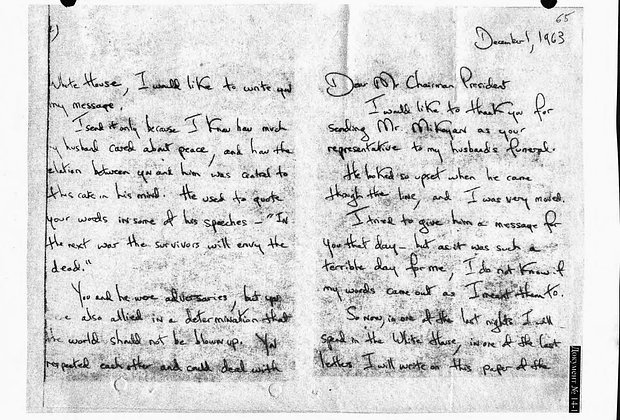 65
December 1, 1963
Dear Mr. Chairman President
I would like to thank you for
sending Mr. Mikoyan as your
representative to my husband's funeral.
He looked so upset when he came
through the line, and I was very moved.
I tried to give him a message for
you that day - but as it was such a
terrible day for me, I do not know if
my words came out as I meant them to.
So now, in one of the last nights I will
spend in the White House, in one of the last
letters I will write on this paper of the
2)
White House, I would like to write you
my message.
I send it only because I know how much
my husband cared about peace, and how the
relation between you and him was central to
this care in his mind. He used to quote
your words in some of his speeches - "In
the next war the survivors will envy the
dead."
You and he were adversaries, but you
also allied in a determination that
the world should not be blown up. You
respected each other and could deal with